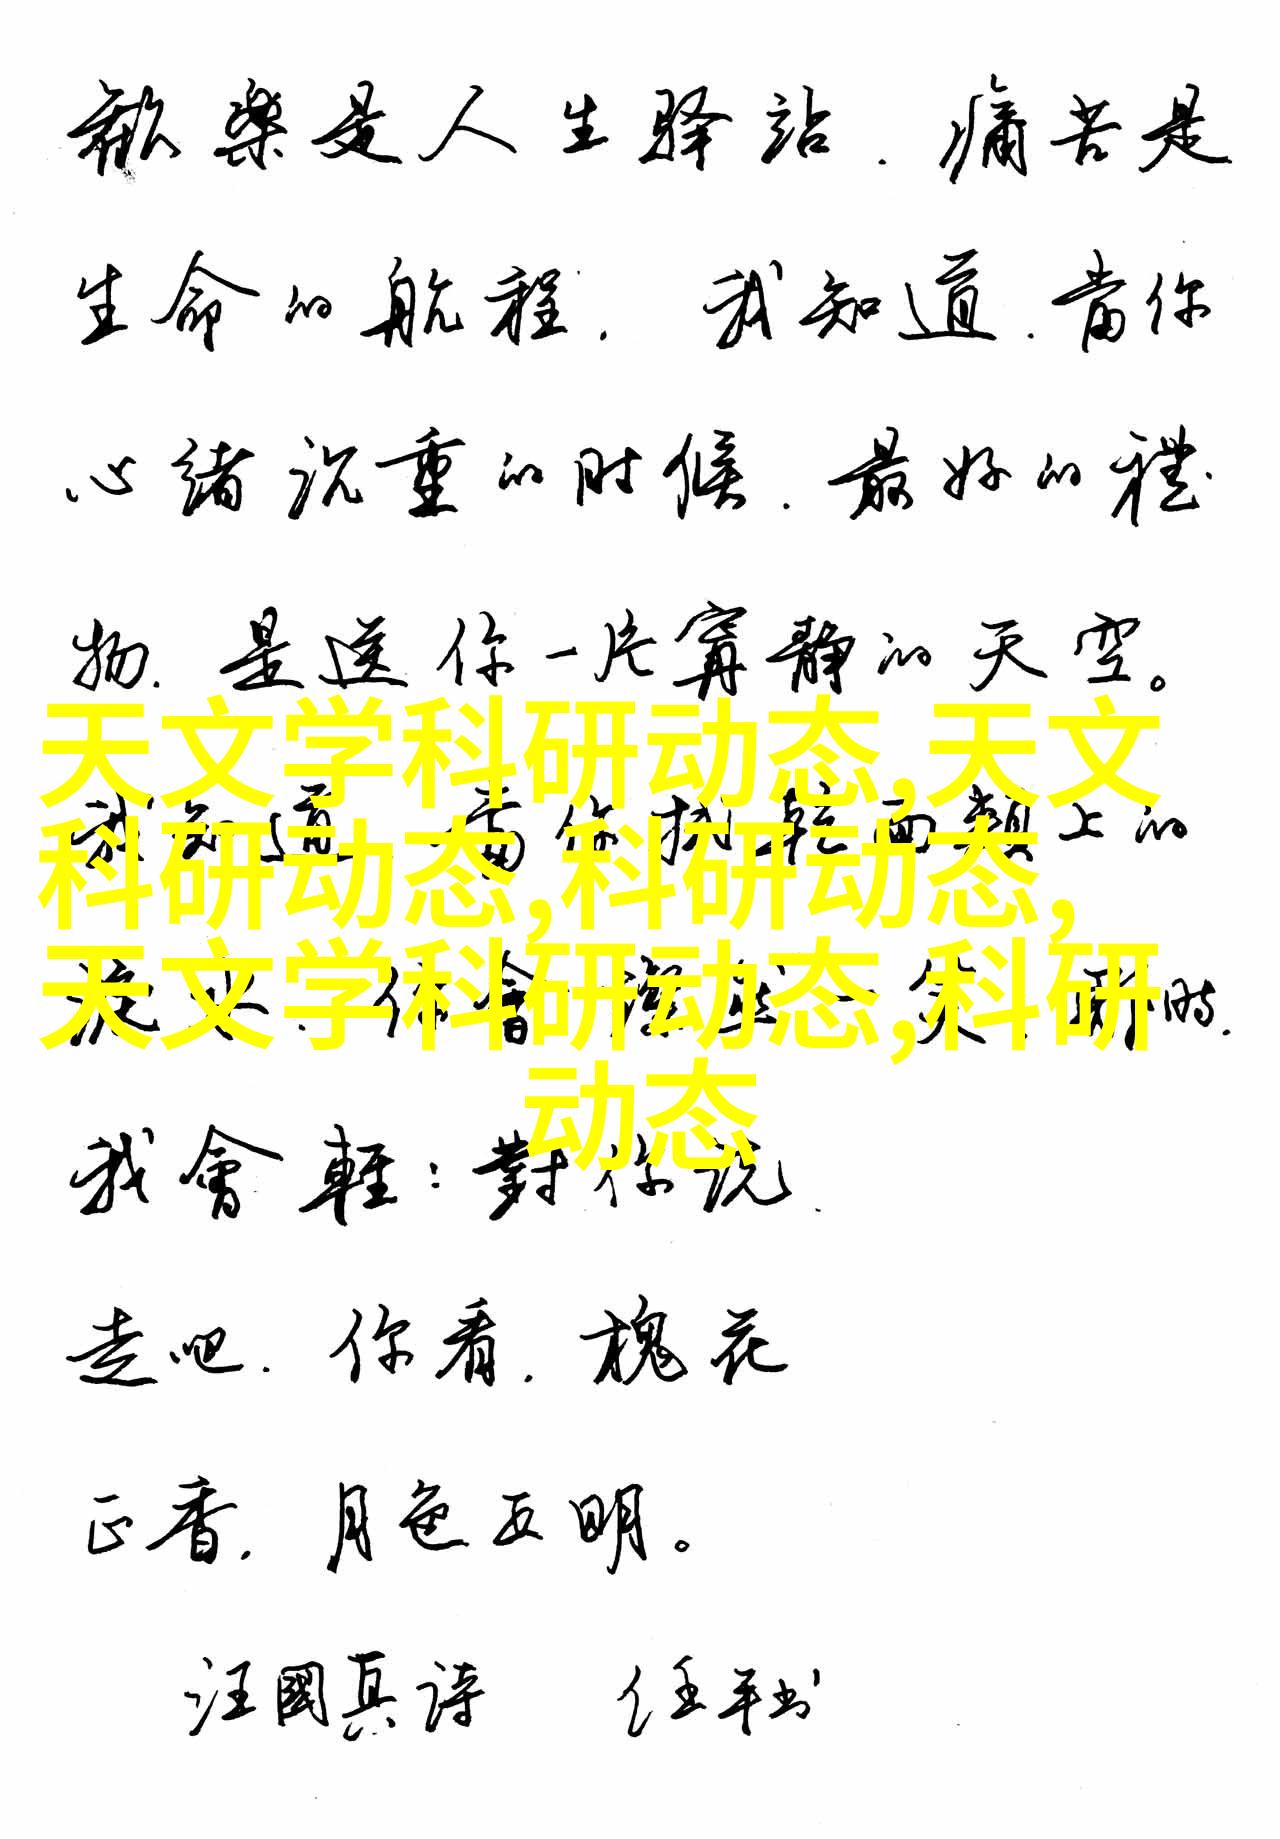 歡樂是人生驿站.痛苦是
生命的航程.我知道.當你
心緒沉重的时候.最好的禮
物.是送你一片寧靜的天空。
天文学科研动态,天文
我知道 當你拭乾面頰上的
科研动态,科研动态,
天文学科研动态,科研
你會 一笑 那時.
动态
我會輕:對你说.
走吧.你看.槐花
正香.月色正明。
汪國真诗 任平书